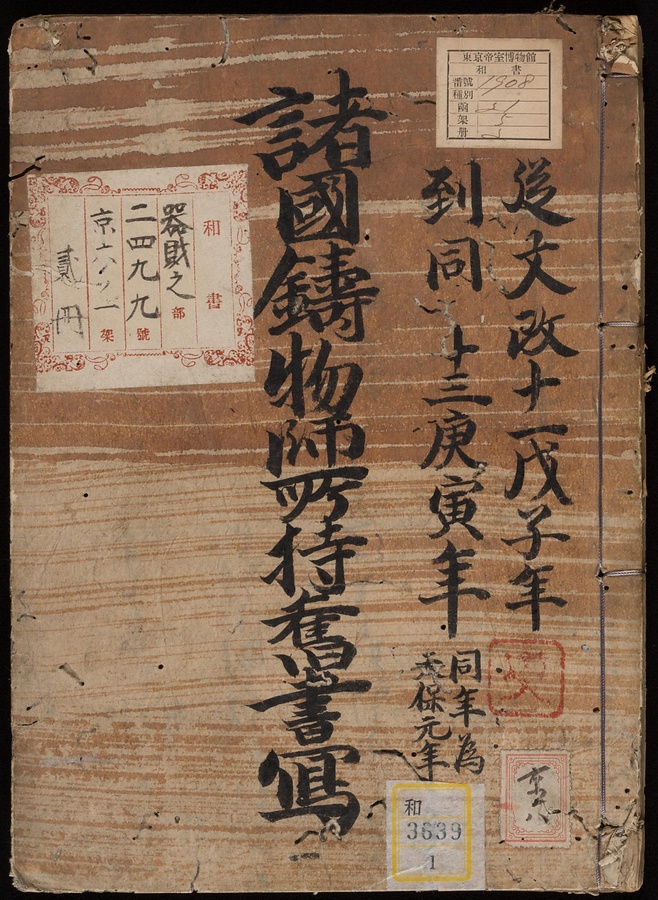 從文政十一戊子年
到同 十三庚寅年
同年為
天保元年
諸國鋳物師所持舊書寫
東京帝室博物館
和書
番號 1908
種別
函 51
架 5
冊 2
和書
器財之部
二四九九號
架
貳冊
和
3639
1
京八